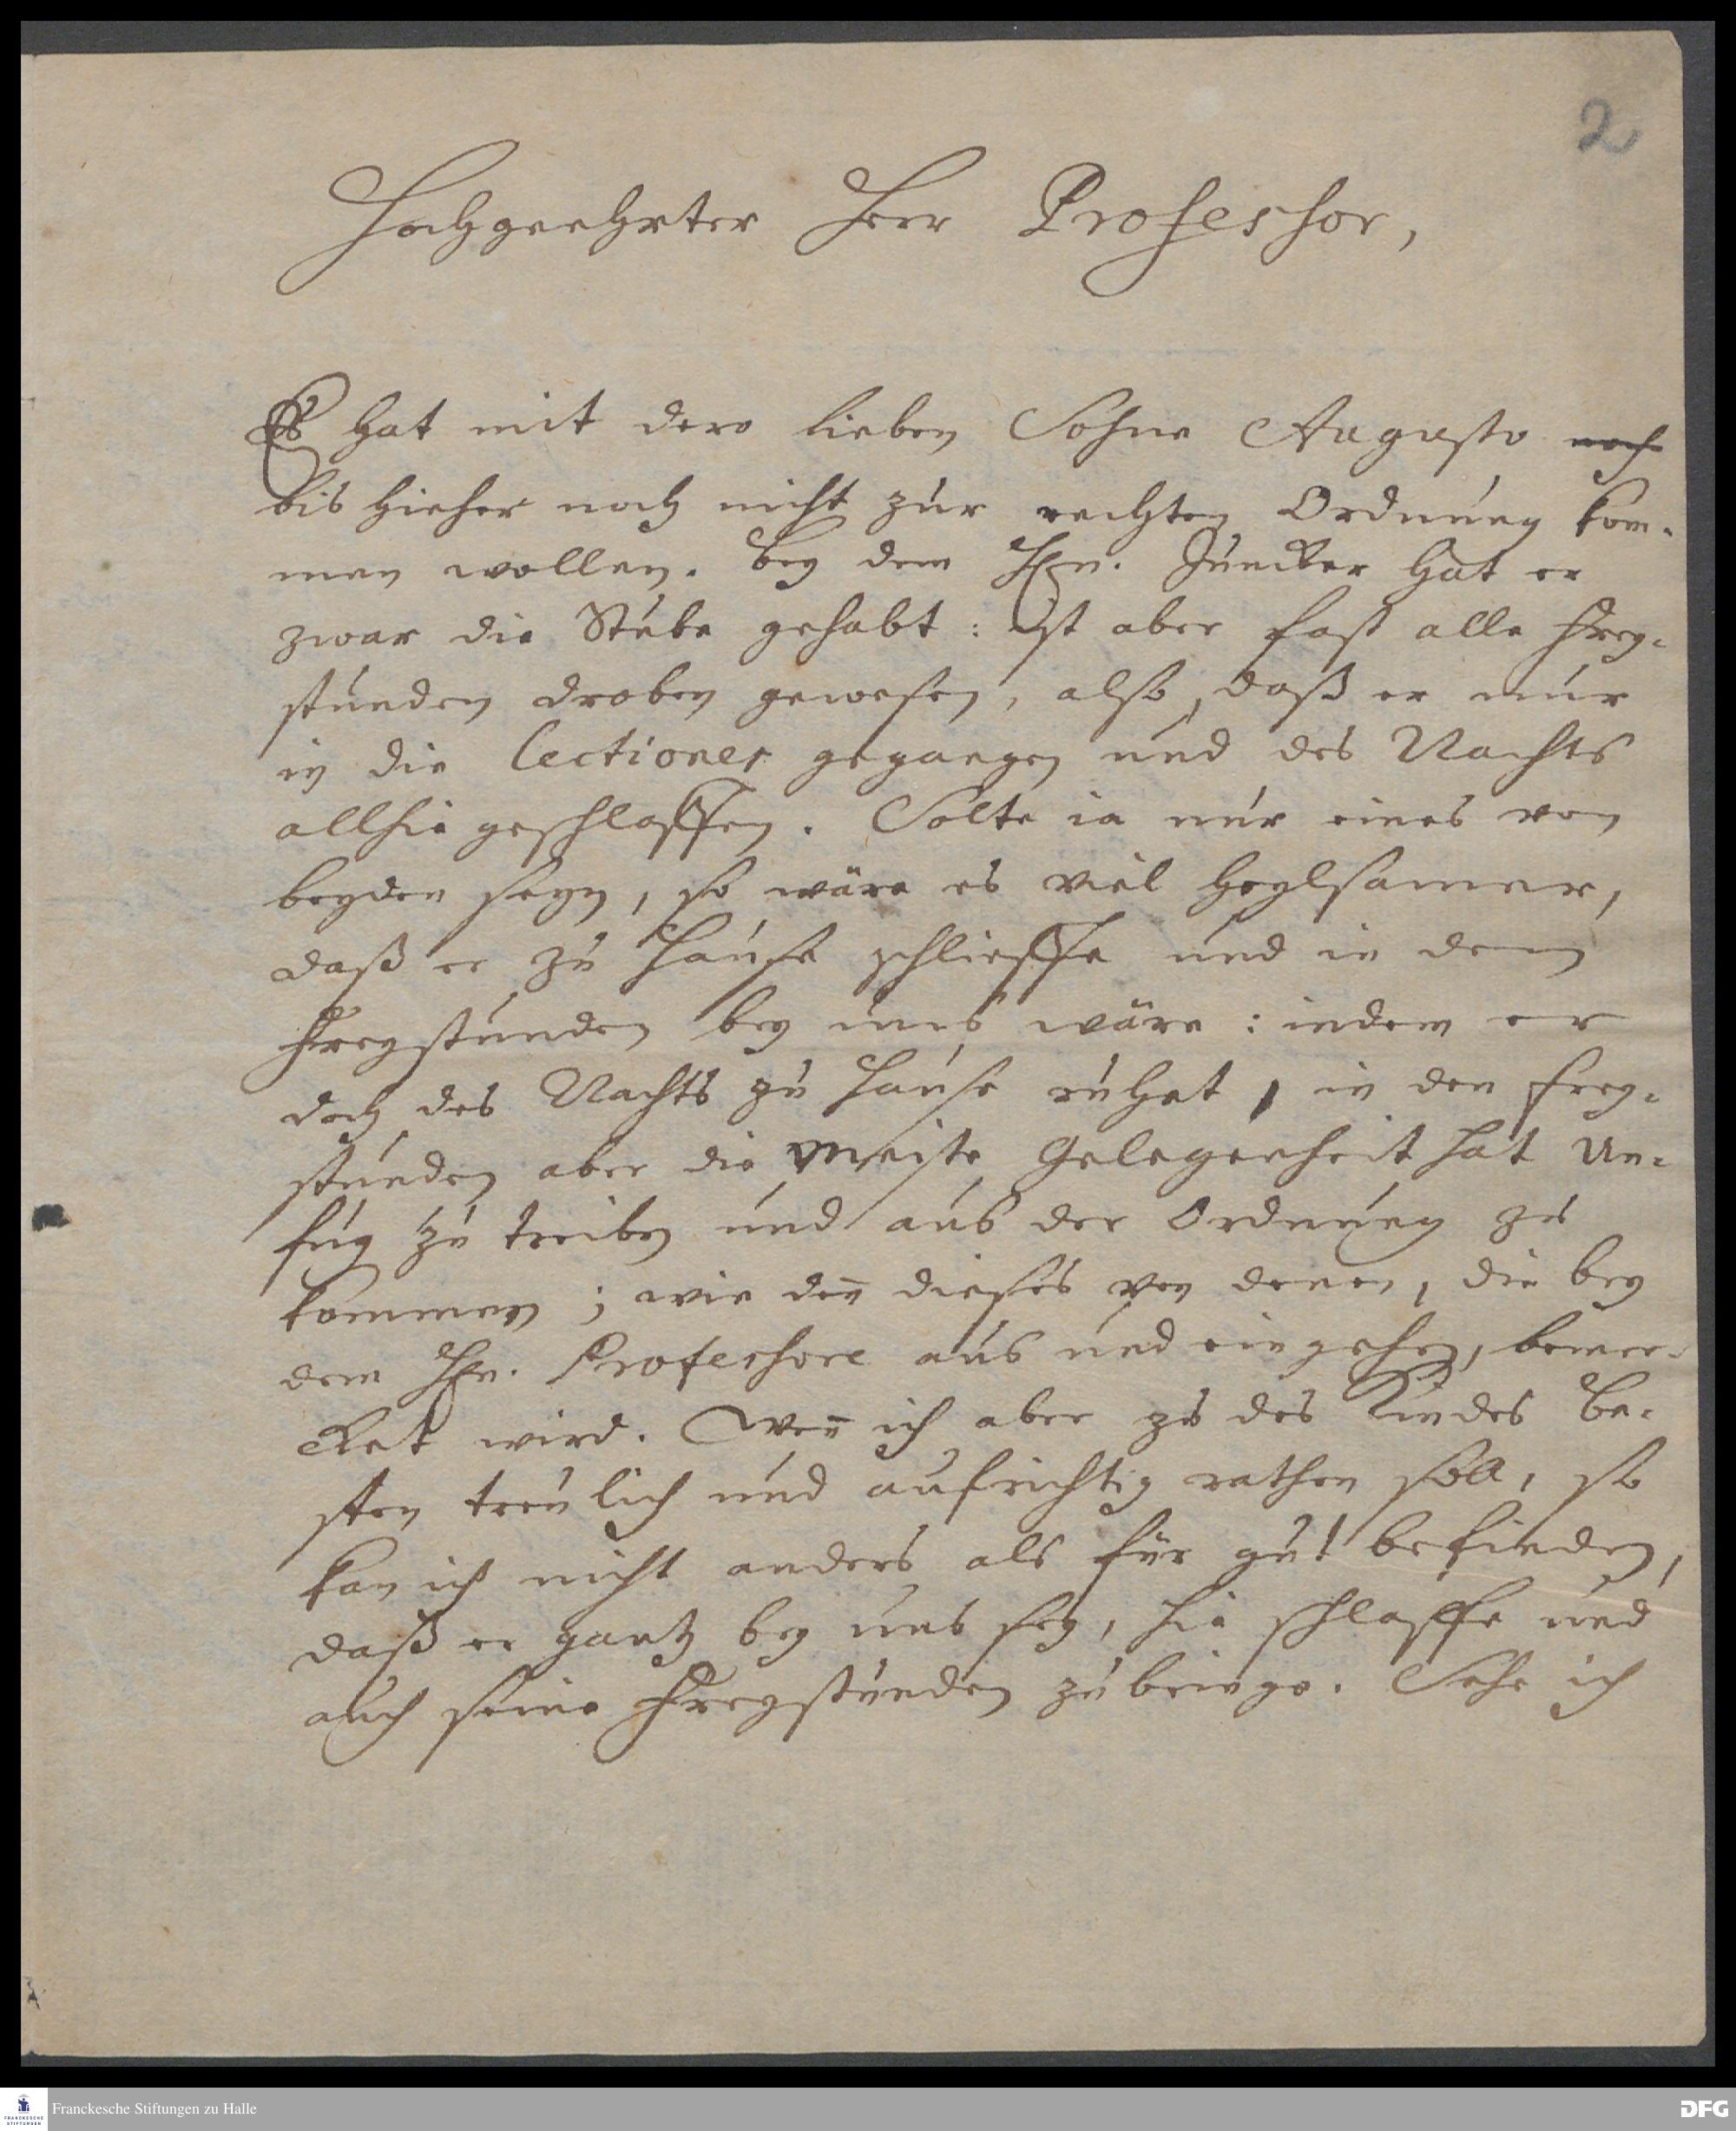 2
Hochgeehrter Herr Professor,
Es hat mit dero lieben Sohne Augusto noch
bis hieher noch nicht zur rechten Ordnung kom-
men wollen. Bey dem Hrn. Juncker hat er
zwar die Stube gehabt: ist aber fast alle Frey-
stunden droben gewesen, also, daß er nur
in die Lectiones gegangen und des Nachts
allhie geschlaffen. Solte ia nur eines von
beyden seyn, so wäre es viel heylsamer,
daß er zu Hause schlieffe und in denen
Freystunden bey uns wäre: indem er
doch des Nachts zu Hause ruhet, in den Frey-
stunden aber die meiste Gelegenheit hat Un-
fug zu treiben und aus der Ordnung zu
kommen; wie deñ dieses von denen, die bey
dem Hrn. Professore aus und eingehen, bemer-
cket wird. Weñ ich aber zu des Kindes Be-
sten treulich und aufrichtig rathen soll, so
kan ich nicht anders als für gut befinden,
daß er gantz bey uns sey, hie schlaffe und
auch seine Freystunden zubringe. Sehe ich
Franckesche Stiftungen zu Halle
FRANCKESCHE
STIFTUNGEN
DFG